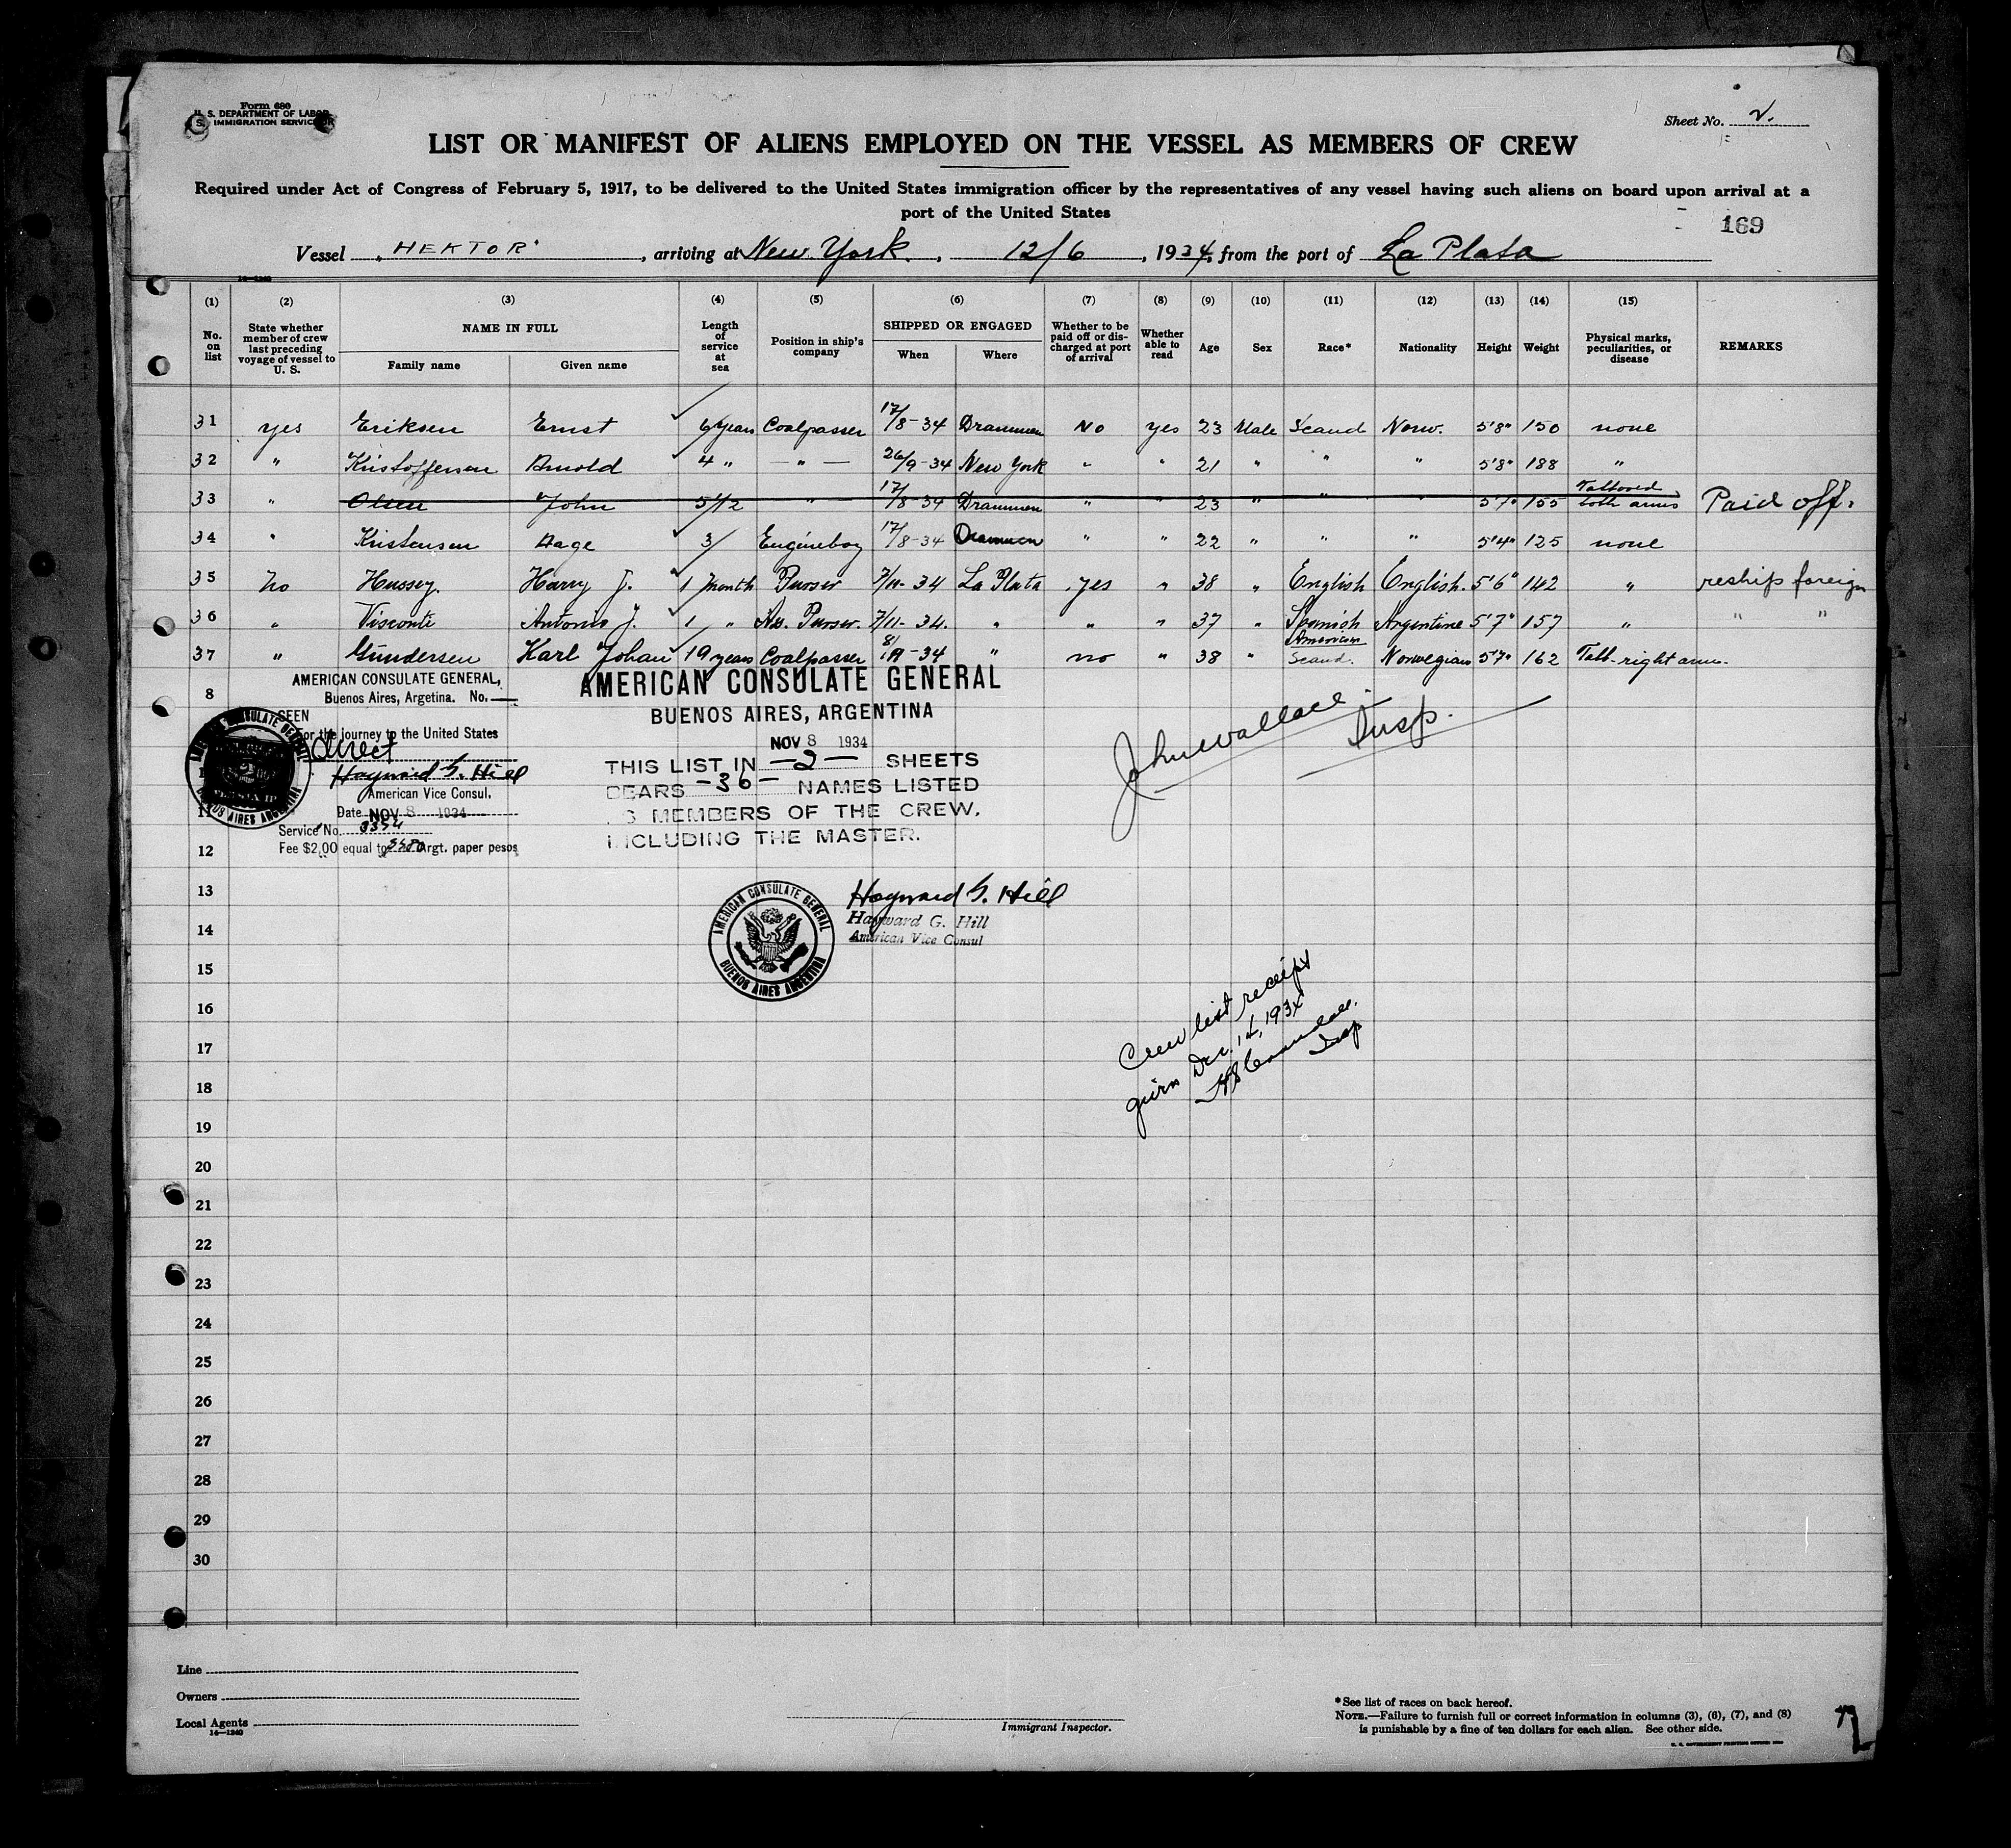 Form 680
U. S. DEPARTMENT OF LABOR
IMMIGRATION SERVICE
Sheet No. 2.
LIST OR MANIFEST OF ALIENS EMPLOYED ON THE VESSEL AS MEMBERS OF CREW
Required under Act of Congress of February 5, 1917, to be delivered to the United States immigration officer by the representatives of any vessel having such aliens on board upon arrival at a
port of the United States
169
Vessel "HEKTOR", arriving at New York., 12/6, 1934, from the port of La Plata
14-1240
(1) (2) (3) (4) (5) (6) (7) (8) (9) (10) (11) (12) (13) (14) (15)
No. on list
State whether member of crew last preceding voyage of vessel to U. S.
NAME IN FULL
Family name
Given name
Length of service at sea
Position in ship's company
SHIPPED OR ENGAGED
When
Where
Whether to be paid off or discharged at port of arrival
Whether able to read
Age
Sex
Race*
Nationality
Height
Weight
Physical marks, peculiarities, or disease
REMARKS
31 yes Eriksen Ernst 6 years Coalpasser 17/8-34 Drammen No yes 23 Male Scand Norw. 5'8" 150 none
32 " Kristoffersen Arnold 4 " — " — 26/9-34 New York " " 21 " " " 5'8" 188 "
33 " Olsen John 5 1/2 " 17/8-34 Drammen " " 23 " " " 5'7" 155 Tattooed both arms Paid off.
34 " Kristensen Aage 3 Engineboy 17/8-34 Drammen " " 22 " " " 5'4" 125 none
35 No Hussey. Harry J. 1 month Purser 7/11-34 La Plata yes " 38 " English English. 5'6" 142 " reship foreign
36 " Visconti Antonio J. 1 " As. Purser. 7/11-34. " " " 37 " Spanish American Argentine 5'7" 157 " " "
37 " Gundersen Karl Johan 19 years Coalpasser 8/11-34 " no " 38 " Scand. Norwegian 5'7" 162 Tatt. right arm.
8
AMERICAN CONSULATE GENERAL,
Buenos Aires, Argetina. No. —
SEEN
For the journey to the United States
direct
Hayward G. Hill
American Vice Consul.
Date NOV 8 1934
Service No. 3354
Fee $2,00 equal to Argt. paper pesos
AMERICAN CONSULATE GENERAL
BUENOS AIRES ARGENTINA
AMERICAN CONSULATE GENERAL
BUENOS AIRES, ARGENTINA
NOV 8 1934
THIS LIST IN —2— SHEETS
BEARS —36— NAMES LISTED
AS MEMBERS OF THE CREW,
INCLUDING THE MASTER.
John Wallace
Insp.
11
12
13
14
15
16
17
18
19
20
21
22
23
24
25
26
27
28
29
30
AMERICAN CONSULATE GENERAL
BUENOS AIRES ARGENTINA
Hayward G. Hill
Hayward G. Hill
American Vice Consul
Crew list receipt
given Dec. 14, 1934
Insp
Line
Owners
Local Agents
14—1240
Immigrant Inspector.
*See list of races on back hereof.
NOTE.—Failure to furnish full or correct information in columns (3), (6), (7), and (8)
is punishable by a fine of ten dollars for each alien. See other side.